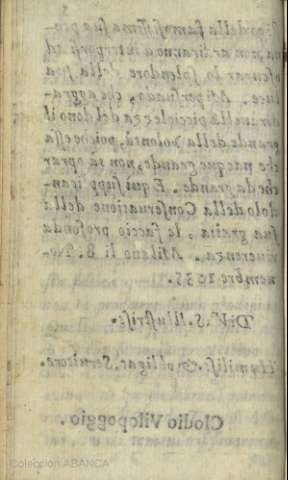 della sua famosissima pro-
non ardiranno
lo splendore della sua
luce. Mi persuado, che aggra-
dirà nella picciolezza del dono il
grande della volontà, poiche essa
che nacque grande, non sa oprar
che da grande. E qui supplican-
dolo della Conseruatione della
sua gratia, le faccio profonda
riuerenza. Milano li 8. No-
uembre 1635.
Di V. S. Illustriss.
Humiliss. & obligat. Seruitore.
Clodio Vilopoggio.
Colección ABANCA